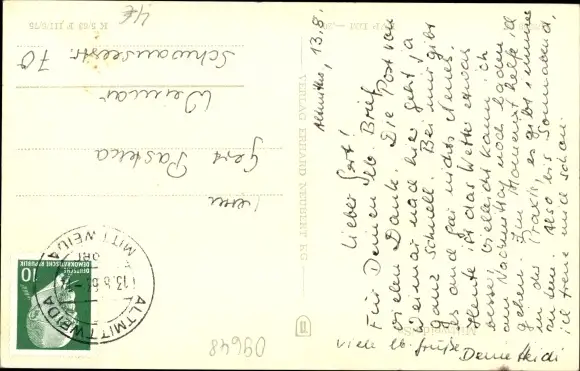 Altmittw., 13.8.
Lieber Gert!
Für Deinen lb. Brief
vielen Dank. Die Post von
Weimar nach hier geht ja
ganz schnell. Bei mir gibt
es auch gar nichts Neues.
Heute ist das Wetter etwas
besser, vielleicht kann ich
am Nachmittag noch baden
gehen. Im Moment helfe ich
in der Praxis, es gibt immer
zu tun. Also bis Sonnabend,
ich freue mich schon.
viele lb. Grüße Deine Heidi
Herrn
Gert
Weimar
Schwanseestr. 70
4€
K 5/63 F III/6/75
VERLAG ERHARD NEUBERT KG
ALTMITTWEIDA
MITTWEIDA
13.8.63
10
DEUTSCHE
DEMOKRATISCHE REPUBLIK
09648